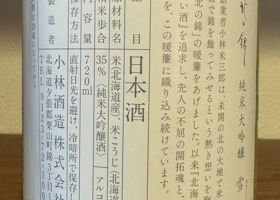 が錦 純米大吟醸 雪
創業者小林米三郎は、未開の北の大地で米
で錦を飾ってみせるという熱き想いを
北の錦』の暖簾をあげました。以来『北海
い酒』を追求し、先人の不屈の開拓魂と、
この暖簾に織り込み続けています。
品目 日本酒
原材料名 米(北海道産)、米こうじ(北海道
精米歩合 35% (純米大吟醸酒) アルコ
内容量 720ml
保存方法 直射日光を避け、冷暗所で保存
製造者 小林酒造株式会
北海道夕張郡栗山町錦3丁目